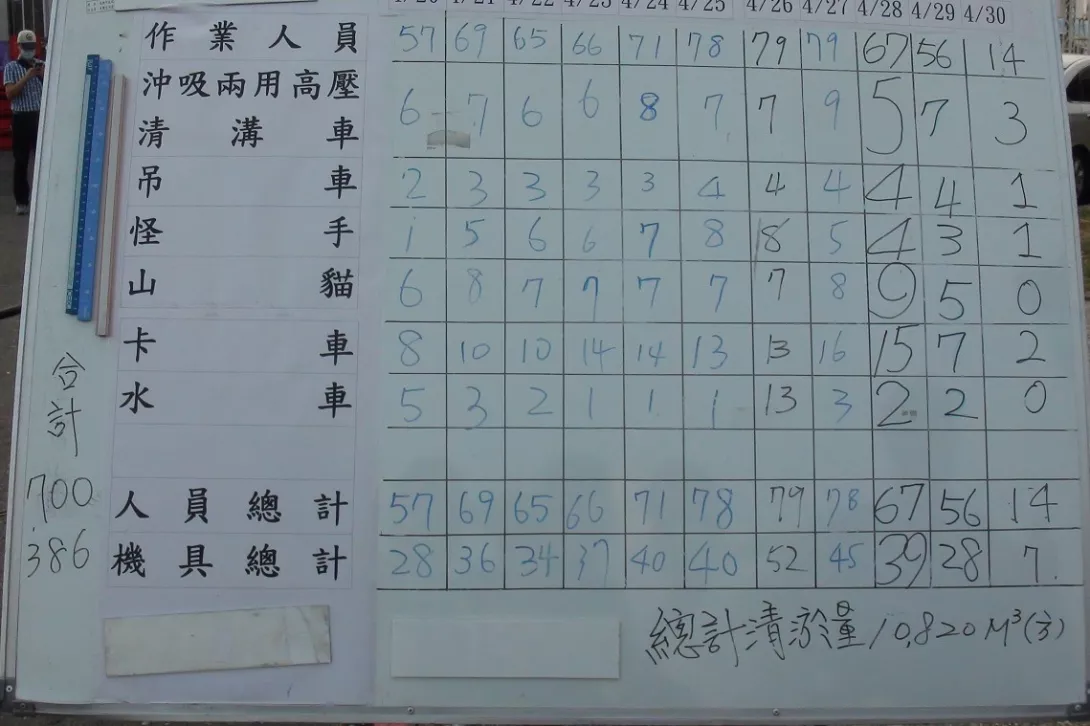 4/20 4/21 4/22 4/23 4/24 4/25 4/26 4/27 4/28 4/29 4/30
作業人員 57 69 65 66 71 78 79 79 67 56 14
沖吸兩用高壓
清溝車 6 7 6 6 8 7 7 9 5 7 3
吊車 2 3 3 3 3 4 4 4 4 4 1
怪手 1 5 6 6 7 8 8 5 4 3 1
山貓 6 8 7 7 7 7 7 8 9 5 0
卡車 8 10 10 14 14 13 13 16 15 7 2
水車 5 3 2 1 1 1 13 3 2 2 0
合計
700 人員總計 57 69 65 66 71 78 79 78 67 56 14
386 機具總計 28 36 34 37 40 40 52 45 39 28 7
總計清淤量10,820M³(方)